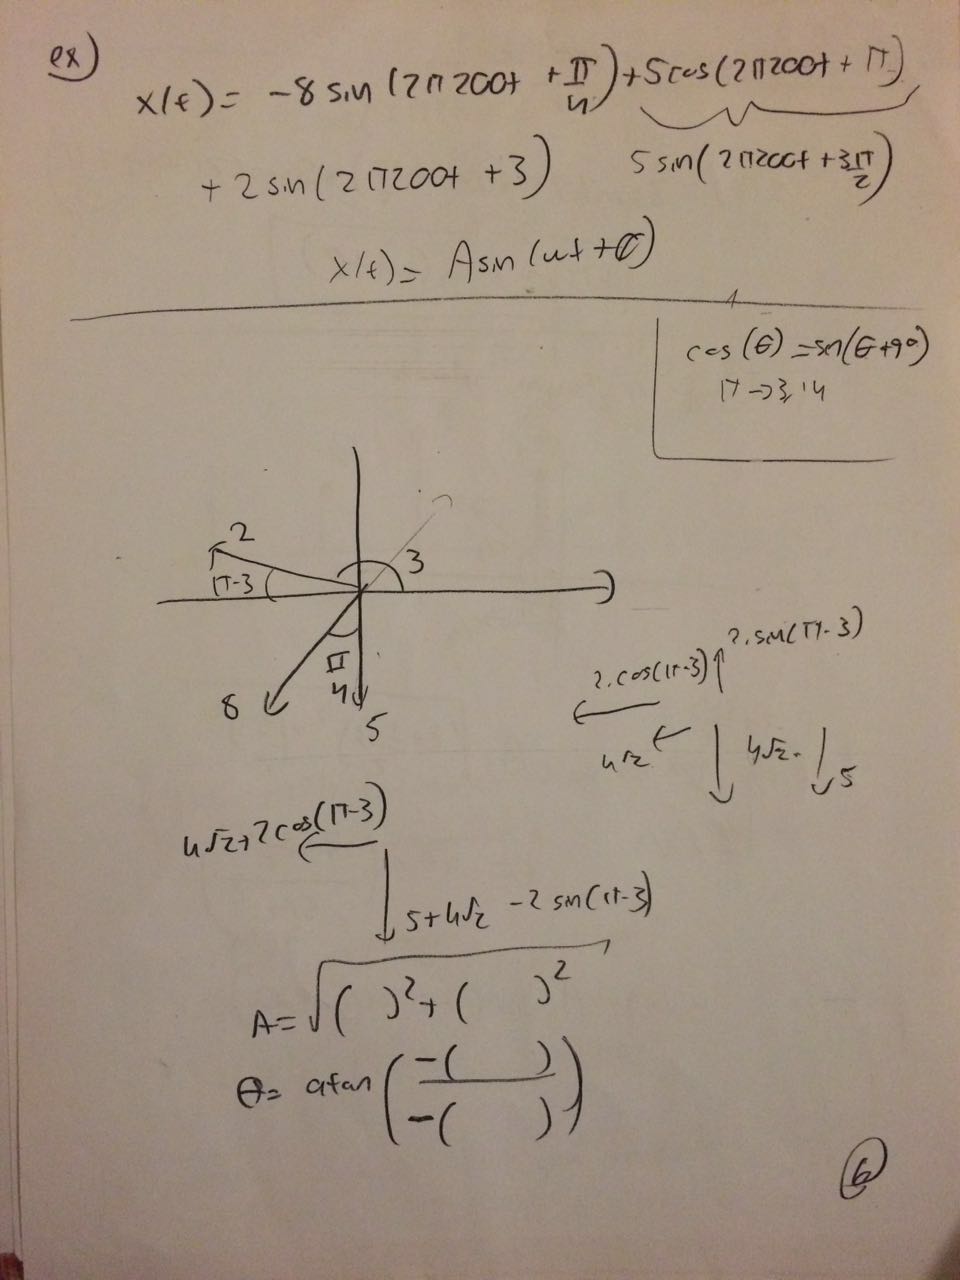 ex)
x(t) = -8 sin (2π200t + π/4) + 5cos(2π200t + π)
+ 2 sin(2π200t + 3) 5 sin(2π200t + 3π/2)
x(t) = A sin (ωt + θ)
cos(θ) = sin(θ+90)
π → 3,14
2
3
π-3
π/4
8
5
2.cos(π-3) 2.sin(π-3)
4√2 4√2 5
4√2+2cos(π-3)
5+4√2 -2 sin(π-3)
A = √( )² + ( )²
θ = atan (-( )/-( ))
6